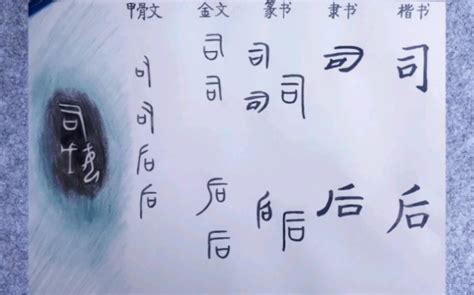 甲骨文 金文 篆书 隶书 楷书
司 司 司 司
司 司 司 司
司 司
后
后 后 后 后 后
后 后